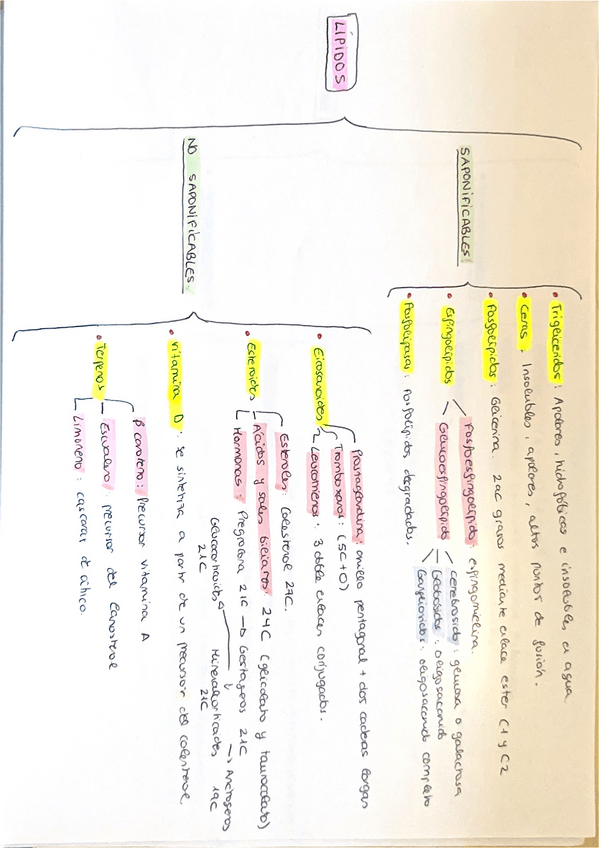 LÍPIDOS
SAPONIFICABLES
• Trigliceridos: Apolares, hidrofóbicos e insolubles en agua
• Ceras. Insolubles, apolares, altos puntos de fusión.
• Fosfolípidos: Glicerina. 2 ac grasos mediante enlace ester C1 y C2
• Esfingolípidos
Fosfoesfingolípido: esfingomielina.
Glucoesfingolípido
cerebrosido: glucosa o galactosa
Globósidos: oligosacarido
Gangliosidos: oligosacarido completo
• Fosfolipasas: Fosfolípidos degradados.
NO SAPONIFICABLES
• Eicosanoides
Prostaglandina: anillo pentagonal + dos cadenas largas
Tromboxanos: (5C + O)
Leucotrienos. 3 doble enlaces conjugados.
• Esteroides
Esteroles: Colesterol 27C.
Ácidos y sales biliares 24C (glicolato y taurocolato)
Hormonas: Pregnolona 21C → Gestagenos 21C
Glucocorticoides 21C
Mineralocorticoides 21C
→ Andrógenos 19C
• Vitamina D: se sintetiza a partir de un precursor del colesterol
• Terpenos
β caroteno: Precursor vitamina A
Escualeno: precursor del lanosterol
Limoneno: cascaras de cítrico.